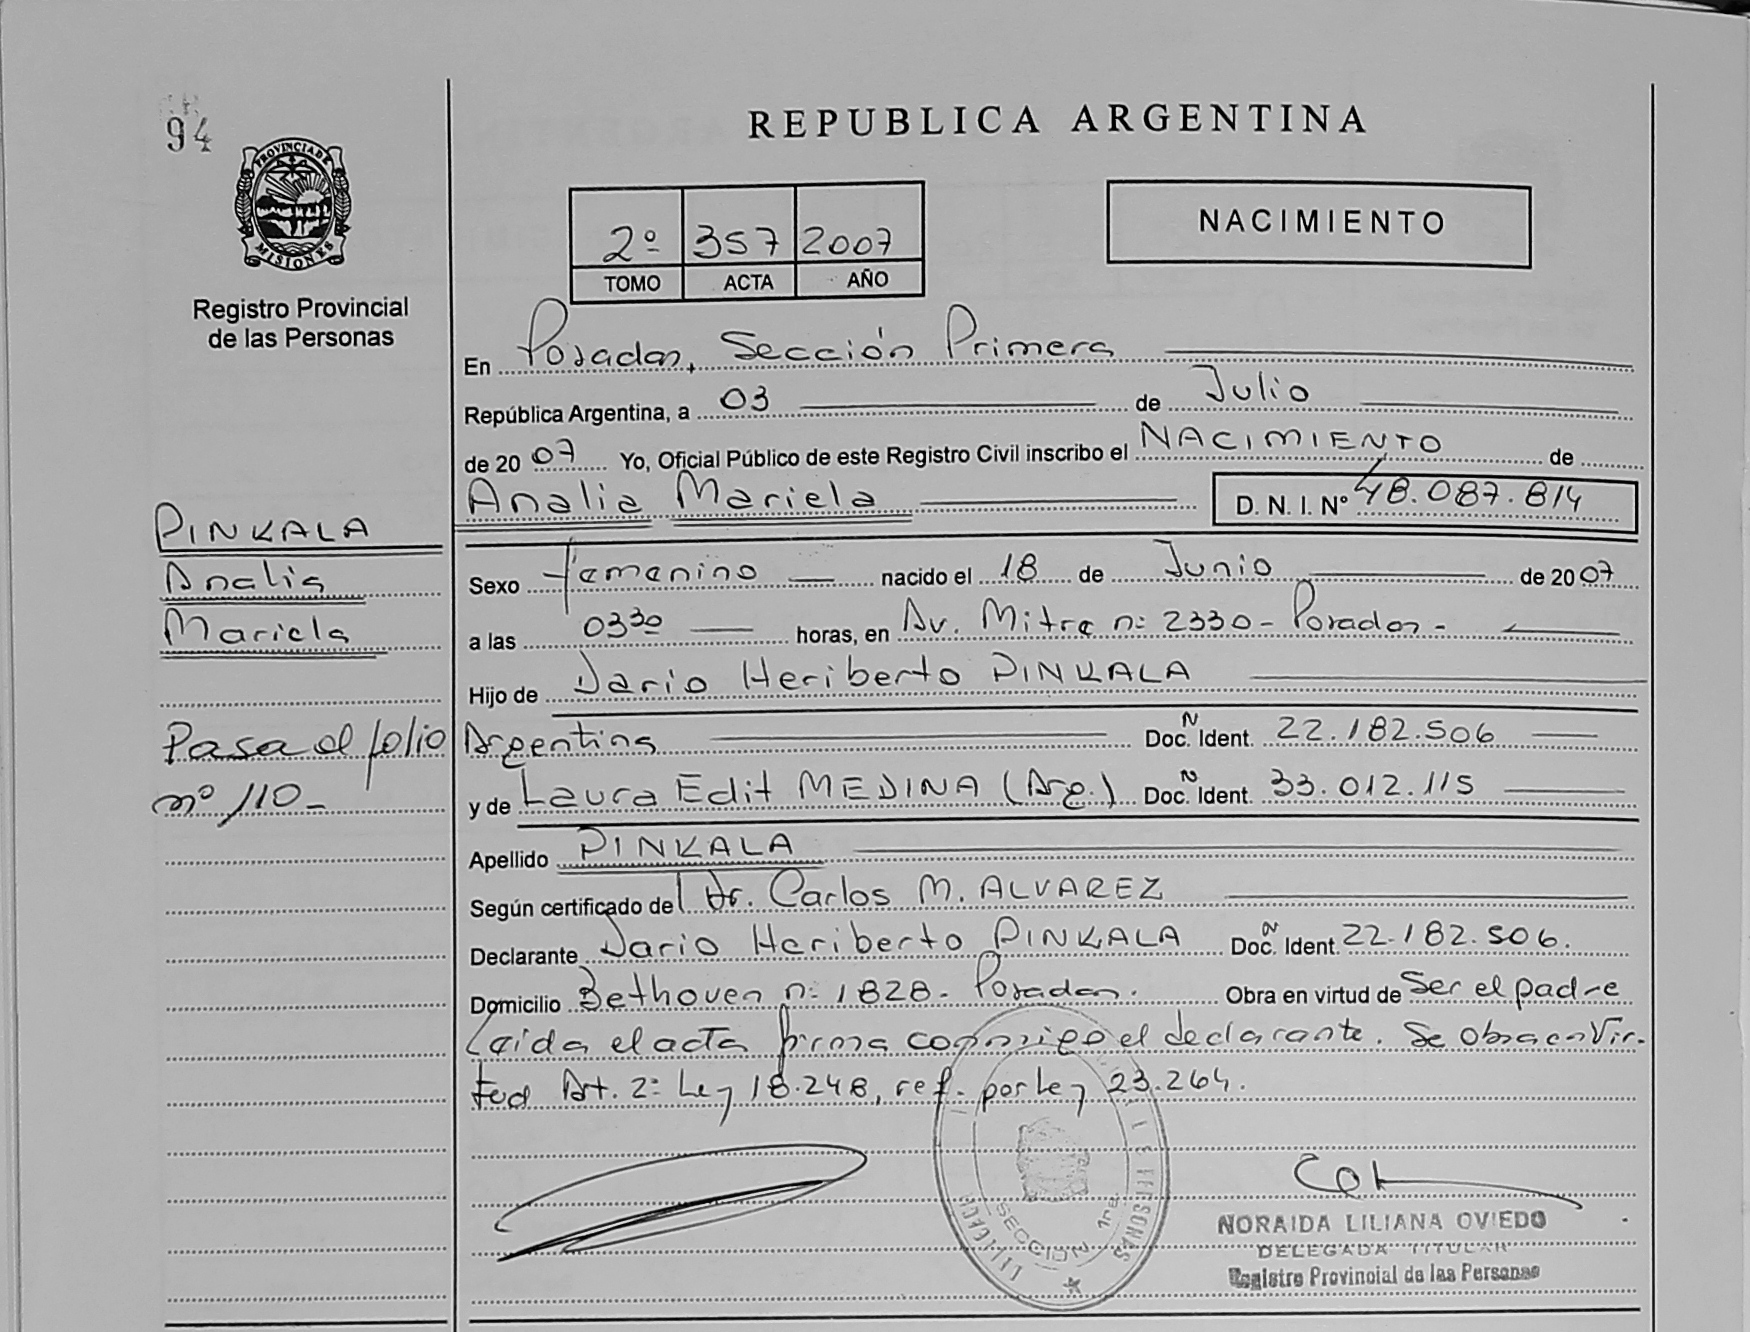 94
PROVINCIA DE
MISIONES
Registro Provincial
de las Personas
REPUBLICA ARGENTINA
2º 357 2007
TOMO ACTA AÑO
NACIMIENTO
En Posadas, Sección Primera
República Argentina, a 03 de Julio
de 20 07 Yo, Oficial Público de este Registro Civil inscribo el NACIMIENTO de
Analia Mariela D. N. I. Nº 48.087.814
PINKALA
Analia
Mariela
Sexo femenino nacido el 18 de Junio de 20 07
a las 03 30 horas, en Av. Mitre nº 2330 - Posadas -
Hijo de Dario Heriberto PINKALA
Pasa al folio
nº 110 -
Argentina Doc. N Ident. 22.182.506
y de Laura Edit MEDINA (Arg.) Doc. N Ident. 33.012.115
Apellido PINKALA
Según certificado del Dr. Carlos M. ALVAREZ
Declarante Dario Heriberto PINKALA Doc. N Ident. 22.182.506.
Domicilio Bethoven nº 1828 - Posadas. Obra en virtud de Ser el padre
Leída el acta firma conmigo el declarante. Se obra en Vir-
tud Art. 2º Ley 18.248, ref. por Ley 23.264.
SECCION 1ra.
NORAIDA LILIANA OVIEDO
DELEGADA TITULAR
Registro Provincial de las Personas